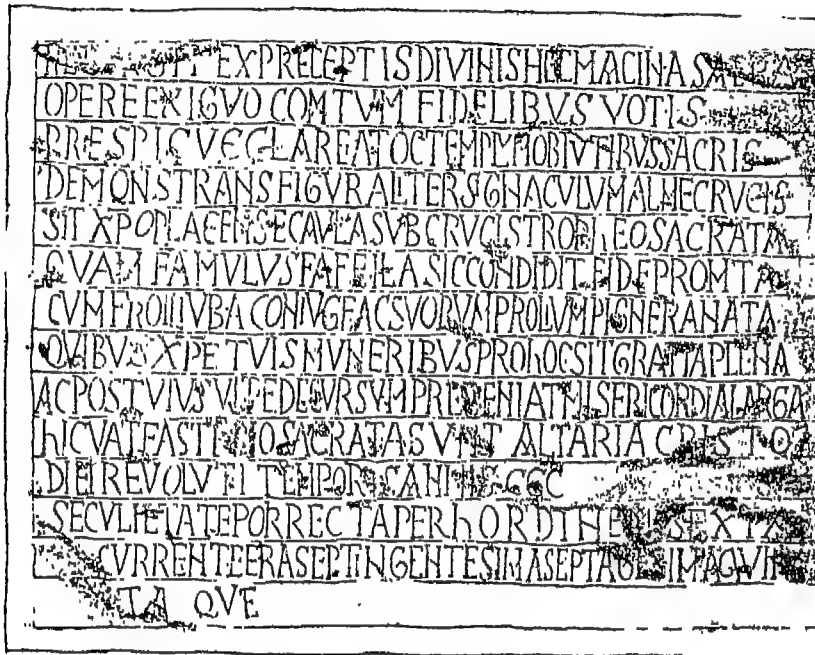 EXPRECEPTISDIVINISHECMACINASACRA
OPEREEXIGVOCOMTVMFIDELIBVSVOTIS
PRESPICVEGLAREATOCTEMPLVMOBTVTIBVSSACRIS
DEMONSTRANSFIGVRALITERSIGNACVLVMALMECRVCIS
SITXPOPLACENSECAVLASVBCRVCISTROPhEOSACRATA
QVAMFAMVLVSFAFEILASICCONDIDITFIDEPROMTA
CVMFROILIVBACONIVGEACSVORVMPROLIVMPIGNERANATA
QVIBVSXPETVISMVNERIBVSPROhOCSITGRATIAPLENA
ACPOSTVIVSVITEDECVRSVMPREVENIATMISERICORDIALARGA
hICVATEASTERIOSACRATASVNTALTARIACRISTO
DIEIREVOLVTITEMPORISANNISCCC
SECVLIETATEPORRECTAPERhORDINEMSEXTA
CVRRENTEERASEPTINGENTESIMASEPTAGESIMAQVIN
TAQVE